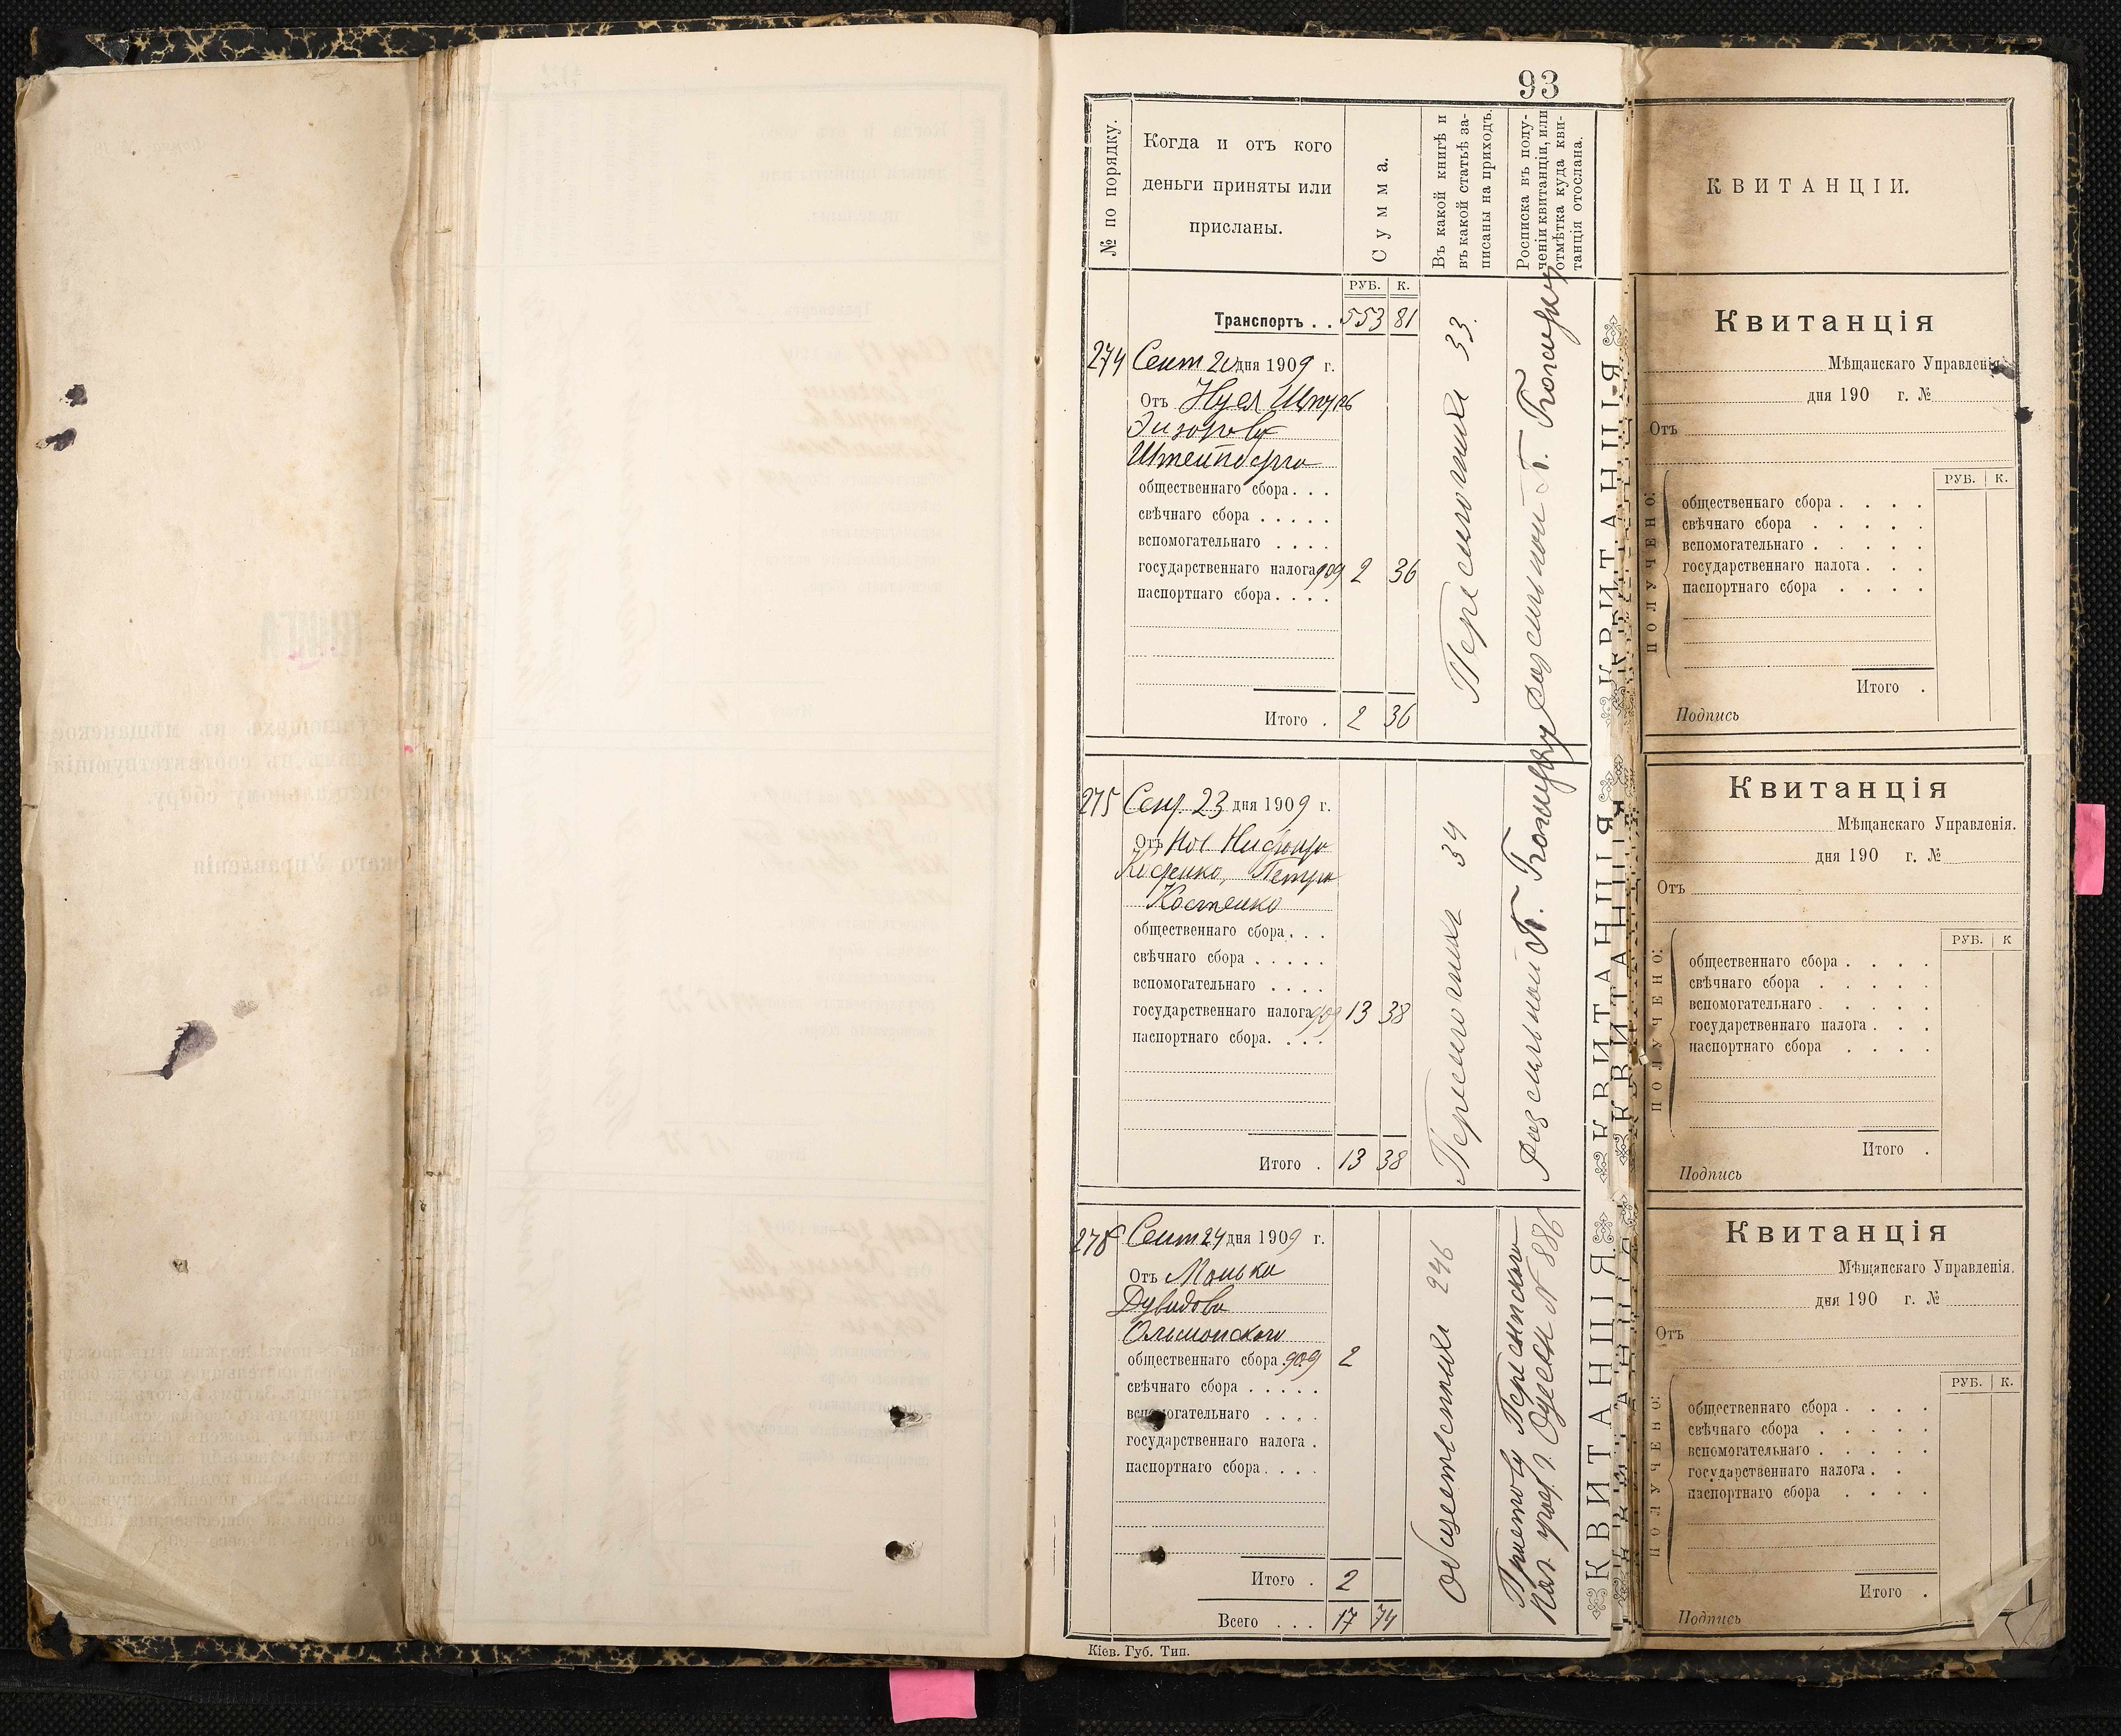 93
№ по порядку.
Когда и отъ кого
деньги приняты или
присланы.
Сумма.
Въ какой книгѣ и
въ какой статьѣ за-
писаны на приходъ.
Росписка въ полу-
ченіи квитанціи, или
отмѣтка куда кви-
танція отослана.
РУБ. К.
Транспортъ . . 553 81
274 Сент 20 дня 1909 г.
Отъ
Штейнберга
общественнаго сбора . . .
свѣчнаго сбора . . . . .
вспомогательнаго . . . .
государственнаго налога 909 2 36
паспортнаго сбора . . . .
Итого . 2 36
33
275 Сент. 23 дня 1909 г.
Отъ
Петра
Костенко
общественнаго сбора . . .
свѣчнаго сбора . . . . .
вспомогательнаго . . . .
государственнаго налога 909 13 38
паспортнаго сбора . . . .
Итого . 13 38
34
276 Сент 24 дня 1909 г.
Отъ Монька
Дувидова
Ольшанского
общественнаго сбора 909 2
свѣчнаго сбора . . . . .
вспомогательнаго . . . .
государственнаго налога .
паспортнаго сбора . . . .
Итого . 2
Всего . . . 17 74
246
Приставу Пересыпского
пол. упас. г. Одессы № 886
Кіев. Губ. Тип.
КВИТАНЦІЯ
КВИТАНЦІЯ
КВИТАНЦІЯ
КВИТАНЦІИ.
Квитанція
Мѣщанскаго Управленія.
дня 190 г. №
Отъ
РУБ. К.
ПОЛУЧЕНО:
общественнаго сбора . . . .
свѣчнаго сбора . . . . .
вспомогательнаго . . . . .
государственнаго налога . . .
паспортнаго сбора . . . .
Итого .
Подпись
Квитанція
Мѣщанскаго Управленія.
дня 190 г. №
Отъ
РУБ. К
ПОЛУЧЕНО:
общественнаго сбора . . . .
свѣчнаго сбора . . . . .
вспомогательнаго . . . . .
государственнаго налога . . .
паспортнаго сбора . . . .
Итого .
Подпись
Квитанція
Мѣщанскаго Управленія.
дня 190 г. №
Отъ
РУБ. К.
ПОЛУЧЕНО:
общественнаго сбора . . . .
свѣчнаго сбора . . . . .
вспомогательнаго . . . . .
государственнаго налога . .
паспортнаго сбора . . . .
Итого .
Подпись